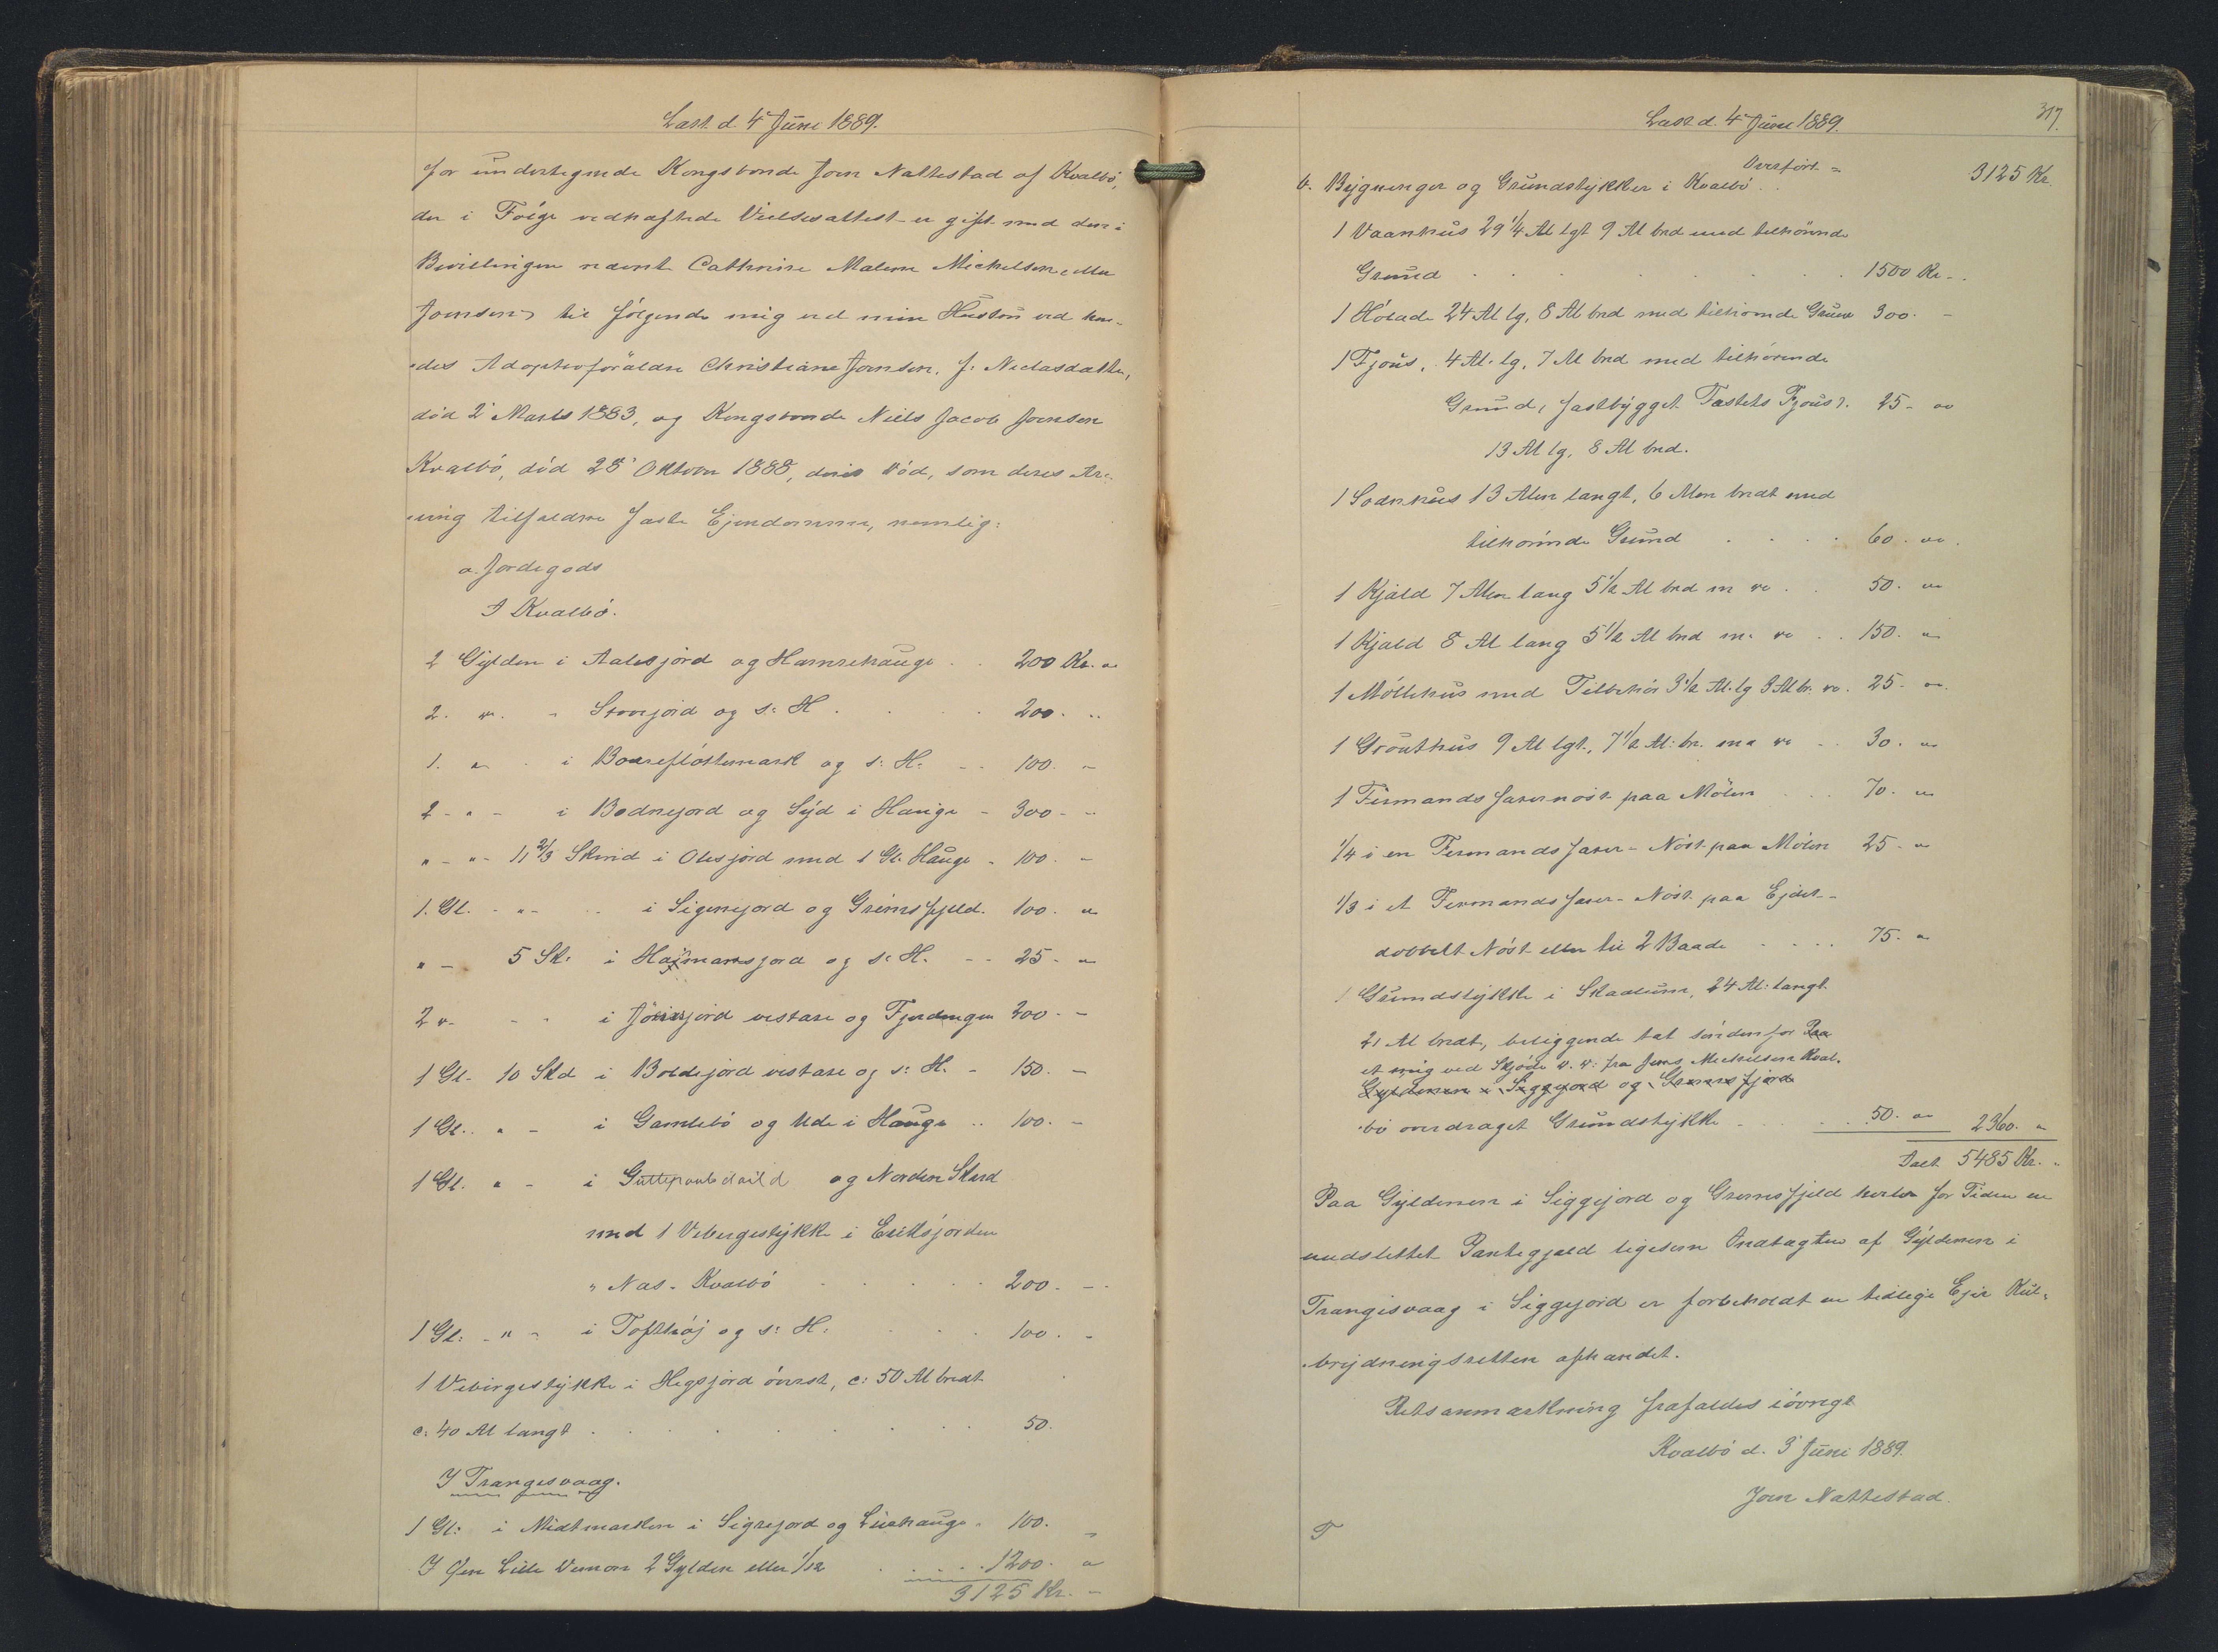 Læst d. 4 Juni 1889.
for undertegnede Kongsbonde Joen Nattestad af Kvalbö,
der i Følge vedhæftede Vielsesattest er gift med den i
Bevillingen nævnte Cathrine Malene Michelsen eller
Joensen, til følgende mig ved min Hustru ved hen-
des Adoptivforældre Christiane Joensen, f. Niclasdatter,
død 2' Marts 1883, og Kongsbonde Niels Jacob Joensen
Kvalbö, død 28' Oktober 1888, deres Död, som deres Ar-
ving tilfaldne faste Ejendomme, nemlig:
a. Jordegods
I Kvalbö.
2 Gylden i Aalesjord og Hamrehauge . . 200 Kr. "
2. " - Stourjord og s: H . . . 200. "
1. " - i Boureflöttemark og s: H. - - 100. -
2 - " - i Bodnejord og Syd i Hauge - 300 - -
" - " - 11 2/3 Skind i Olesjord med 1 Gl. Hauge - 100. -
1. Gl. - " - i Sigmejord og Grimsfjeld. 100. "
" - 5 Sk: i Højmansjord og s: H. - - 25 - "
2 " - - i jord vestare og Fjerdingen 200 - -
1 Gl. 10 Skd i Boldejord vestare og s: H. - 150. -
1 Gl. " - i Gamlebö og Ude i Hauge . . 100. -
1 Gl. " - i og Norden Skard
med 1 Vebergestykke i Eriksjorden
" Nas. Kvalbö . . . . 200. -
1 Gl: - " - i Tofthøj og s: H: . . . 100. -
1 Vebirgestykke i Hegsjord överst, c: 50 Al bredt
c: 40 Al langt . . . . . . 50.
I Trangisvaag.
1 Gl: i Midtmarken i Sigrejord og Liahauge. 100. "
I Øen Lille Dimon 2 Gylden eller 1/12 . . . . 1200. "
3125 Kr. -
Læst d. 4 Juni 1889.
317.
Overført = 3125 Kr.
b. Bygninger og Grundstykker i Kvalbö . .
1 Vaanhus 29 1/4 Al lgt 9 Al bred med tilhörende
Grund . . . . . . 1500 Kr - .
1 Hölade 24 Al lg, 8 Al bred med tilhörende Grund 300. -
1 Fjøus, 4 Al. lg, 7 Al bred med tilhörende
Grund, fastbygget Fjøus 25 - "
13 Al lg, 8 Al bred.
1 Sodnhus 13 Alen langt, 6 Alen bredt med
tilhörende Grund . . . . 60. "
1 Kjald 7 Alen lang 5 1/2 Al bred m v . . 50. "
1 Kjald 8 Al lang 5 1/2 Al bred m. v . . 150. "
1 Møllehus med Tilbehör 3 1/2 Al. lg 3 Al br. 25 - "
1 Grouthus 9 Al lgt, 7 1/2 Al: br. - . 30. "
1 Firmandsfarernöst paa Mölen . . . 70. "
1/4 i en Firmandsfarer-Nöst paa Mölen 25 - "
1/3 i et Firmandsfarer-Nöst paa Ejdet -
dobbelt Nöst eller til 2 Baade . . . . 75. "
1 Grundstykke i Skaalum, 24 Al: langt
21 Al bredt, beliggende tæt sönden for Paa
et mig ved Skjøde fra Jens Michelsen Kval-
Gyldenen i Siggejord og Grimsfjord
bö overdraget Grundstykke . . . . 50. " 2360. "
Ialt 5485 Kr. "
Paa Gyldenen i Siggejord og Grimsfjeld hviler for Tiden en
uudslettet Pantegjæld ligesom Ondtagten af Gyldenen i
Trangisvaag i Siggejord er forbeholdt en tidlige Ejer Kul-
brydningsretten afhændet.
Retsanmærkning frafaldes iövrigt
Kvalbö d. 3' Juni 1889.
Joen Nattestad.
T